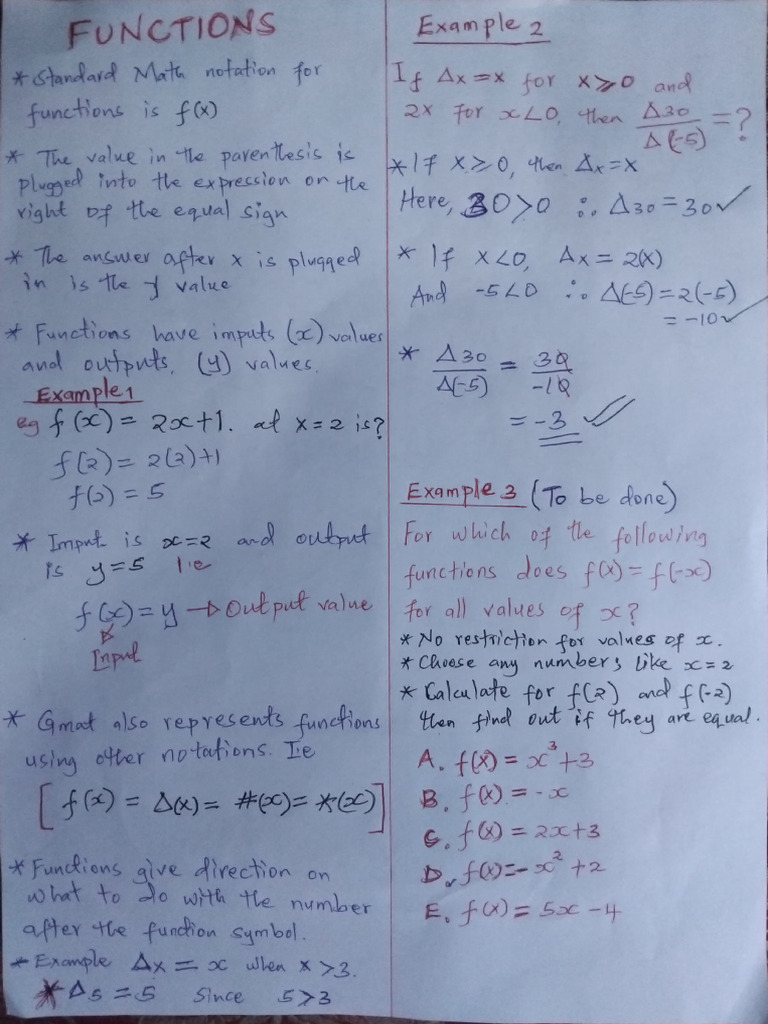 FUNCTIONS
* Standard Math notation for
functions is f(x)
* The value in the parenthesis is
plugged into the expression on the
right of the equal sign
* The answer after x is plugged
in is the y value
* Functions have imputs (x) values
and outputs, (y) values.
Example 1
eg f(x) = 2x+1. at x=2 is?
f(2) = 2(2)+1
f(2) = 5
* Imput is x=2 and output
is y=5 i.e
f(x) = y → Output value
Input
* Gmat also represents functions
using other notations. I.e
[f(x) = Δ(x) = #(x) = *(x)]
* Functions give direction on
what to do with the number
after the function symbol.
* Example Δx = x when x >3.
* Δ5 = 5 Since 5>3
Example 2
If Δx = x for x≥0 and
2x for x<0, then Δ30/Δ(-5) = ?
* If x≥0, then Δx=x
Here, 30>0 ∴ Δ30 = 30 ✓
* If x<0, Δx = 2(x)
And -5<0 ∴ Δ(-5) = 2(-5)
= -10 ✓
* Δ30/Δ(-5) = 30/-10
= -3 ✓
Example 3 (To be done)
For which of the following
functions does f(x) = f(-x)
for all values of x?
* No restriction for values of x.
* Choose any numbers like x=2
* Calculate for f(2) and f(-2)
then find out if they are equal.
A. f(x) = x³+3
B. f(x) = -x
C. f(x) = 2x+3
D. f(x) = -x² +2
E. f(x) = 5x -4